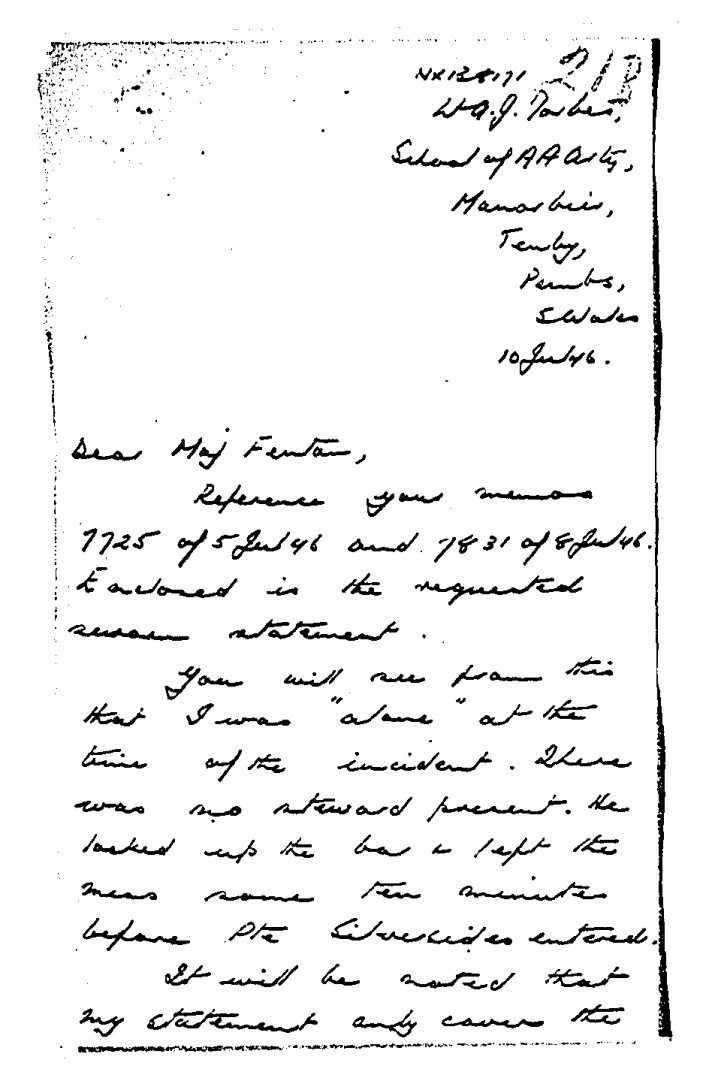 NX138171 21B
Lt A.J. Forbes,
School of AA Arty,
Manorbier,
Tenby,
Pembs,
S Wales
10 Jul 46.
Dear Maj Fenton,
Reference your memos
7725 of 5 Jul 46 and 7831 of 8 Jul 46.
Enclosed is the requested
sworn statement.
You will see from this
that I was "alone" at the
time of the incident. There
was no steward present. He
locked up the bar & left the
mess some ten minutes
before Pte Silversides entered.
It will be noted that
my statement only covers the